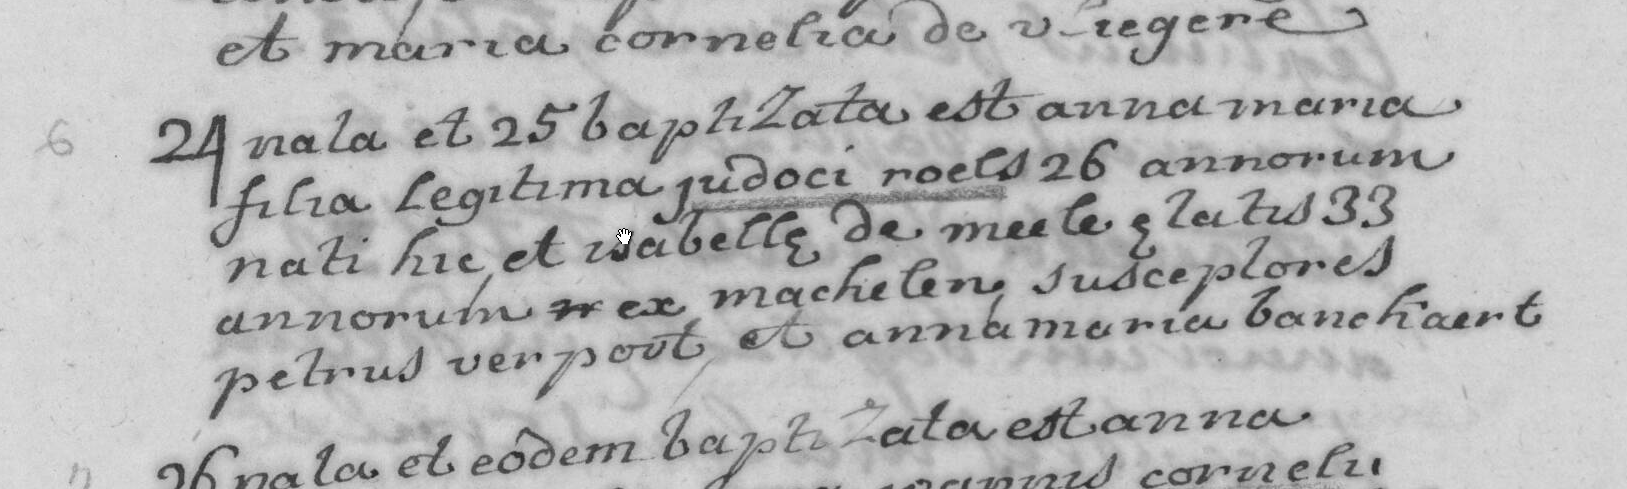 et maria cornelia de vliegere
6 24 nata et 25 baptizata est anna maria
filia legitima judoci roels 26 annorum
nati hic, et isabellę de meele ętatis 33
annorum ex machelen, susceptores
petrus verpoort, et anna maria banckaert
26 nata et eodem baptizata est anna
joannis cornelii